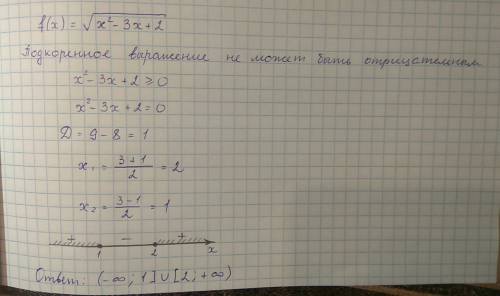 f(x) = √(x² - 3x + 2)
Подкоренное выражение не может быть отрицательным
x² - 3x + 2 ≥ 0
x² - 3x + 2 = 0
D = 9 - 8 = 1
x₁ = (3+1)/2 = 2
x₂ = (3-1)/2 = 1
+ - +
1 2 x
Ответ: (-∞; 1]∪[2; +∞)